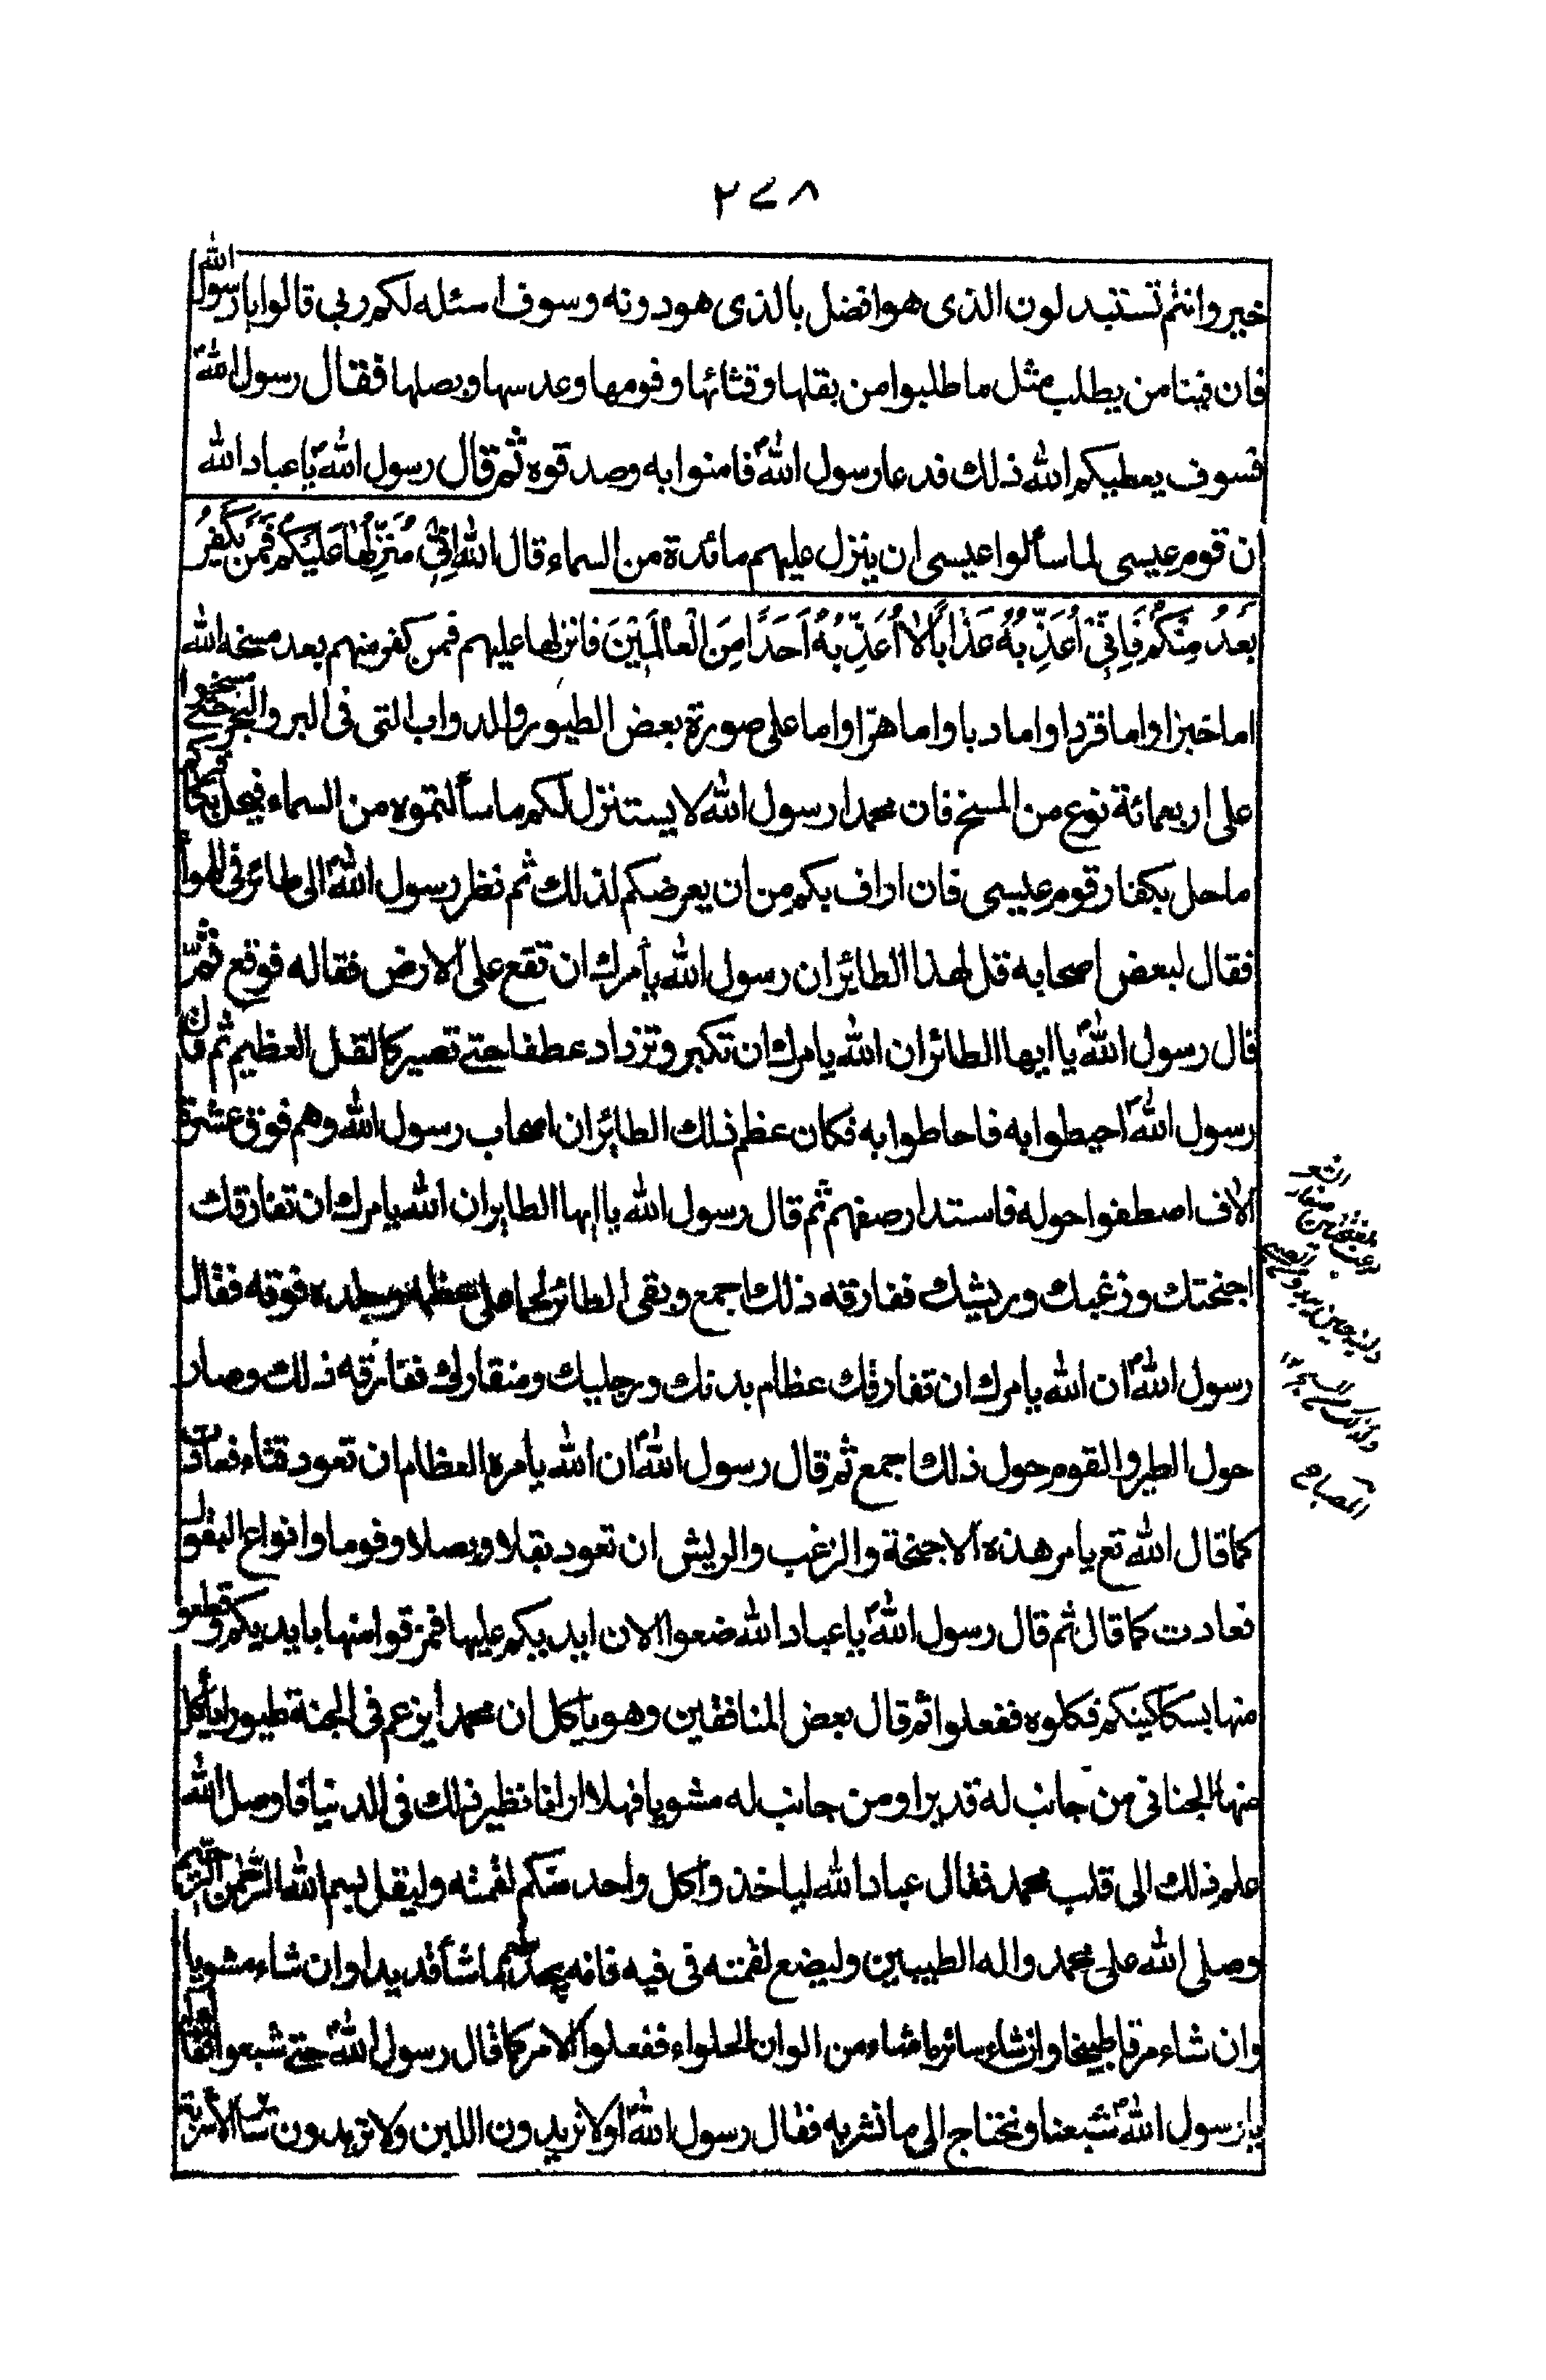 ٢٧٨
خير وانتم تستبدلون الذى هو افضل بالذى هو دونه وسوف اسئله لكم ربي قالوا يا رسول الله
فان فينا من يطلب مثل ما طلبوا من بقلها وقثائها وفومها وعدسها وبصلها فقال رسول اللهؐ
فسوف يعطيكم الله ذلك فدعا رسول اللهؐ فامنوا به وصدقوه ثم قال رسول اللهؐ يا عباد الله
ان قوم عيسى لما سألوا عيسى ان ينزل عليهم مائدة من السماء قال الله اِنِّي مُنَزِّلُهَا عَلَيْكُمْ فَمَنْ يَكْفُرْ
بَعْدُ مِنْكُمْ فَاِنِّي اُعَذِّبُهُ عَذَابًا لَا اُعَذِّبُهُ اَحَدًا مِنَ الْعَالَمِيْنَ فانزلها عليهم فمن كفر منهم بعد مسخه الله
اما خنزيرا واما قردا واما دبا واما هرّا واما على صورة بعض الطيور والدواب التى فى البر والبحر حتى مسخوا
على اربعمائة نوع من المسخ فان محمدا رسول الله لا يستنزل لكم ما سألتموه من السماء فيحل بكفاركم
ما حل بكفار قوم عيسى فان اراف بكم من ان يعرضكم لذلك ثم نظر رسول اللهؐ الى طائر فى الهواء
فقال لبعض اصحابه قل لهذا الطائر ان رسول الله يأمرك ان تقع على الارض فقاله فوقع ثمّ
قال رسول اللهؐ يا ايها الطائر ان الله يامرك ان تكبر وتزداد عظما حتى تصير كالتل العظيم ثم قال
رسول اللهؐ احيطوا به فاحاطوا به فكان عظم ذلك الطائر ان اصحاب رسول الله وهم فوق عشرة
آلاف اصطفوا حوله فاستدار صفهم ثم قال رسول الله يا ايها الطاير ان الله يامرك ان تفارقك
اجنحتك وزغبك وريشك ففارقه ذلك اجمع وبقى الطائر لحما على عظم وجلده فوقه فقال
رسول اللهؐ ان الله يامرك ان تفارقك عظام بدنك ورجليك ومنقارك ففارقه ذلك وصار
حول الطير والقوم حول ذلك اجمع ثم قال رسول اللهؐ ان الله يأمر هذه العظام ان تعود قثاء فعادت
كما قال الله تع يامر هذه الاجنحة والزغب والريش ان تعود بقلا وبصلا وفوما وانواع البقول
فعادت كما قال ثم قال رسول اللهؐ يا عباد الله ضعوا الان ايديكم عليها فمزقوا منها بايديكم وقطعوا
منها بسكاكينكم فكلوه ففعلوا ثم قال بعض المنافقين وهو ياكل ان محمدا يزعم فى الجنة طيورا يأكل
منها الجناني من جانب له قديرا ومن جانب له مشويا فهلا ارانا نظير ذلك فى الدنيا فاوصل الله
علم ذلك الى قلب محمد فقال عباد الله لياخذ واكل واحد منكم لقمته وليقل بسم الله الرحمن الرحيم
وصلى الله على محمد واله الطيبين وليضع لقمته فى فيه فانه يجد طعم ما شاء قديدا وان شاء مشويا
وان شاء مرقا طبيخا وان شاء سائر ما شاء من الوان الحلواء ففعلوا الامر كما قال رسول اللهؐ حتى شبعوا فقالوا
يا رسول اللهؐ شبعنا ونحتاج الى ما نشربه فقال رسول اللهؐ اولا تريدون اللبن ولا تريدون سائر الاشربة